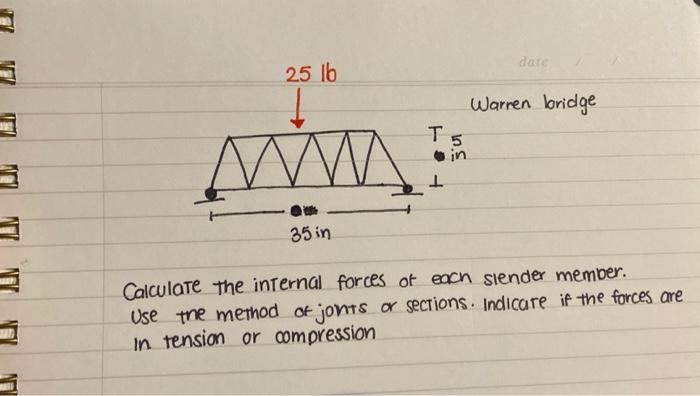 date / /
25 lb
Warren bridge
5
in
35 in
Calculate the internal forces of each slender member.
Use the method of joints or sections. Indicate if the forces are
in tension or compression